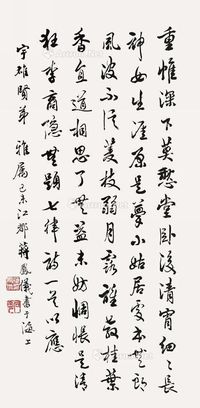 重帷深下莫愁堂卧後清宵細〻長
神女生涯原是夢小姑居處本無郎
風波不信菱枝弱月露誰教桂葉
香直道相思了無益未妨惆悵是清
狂李商隱無題七律詩一首以應
宇雄賢弟 雅屬 己未江都蔣鳳儀書于海上